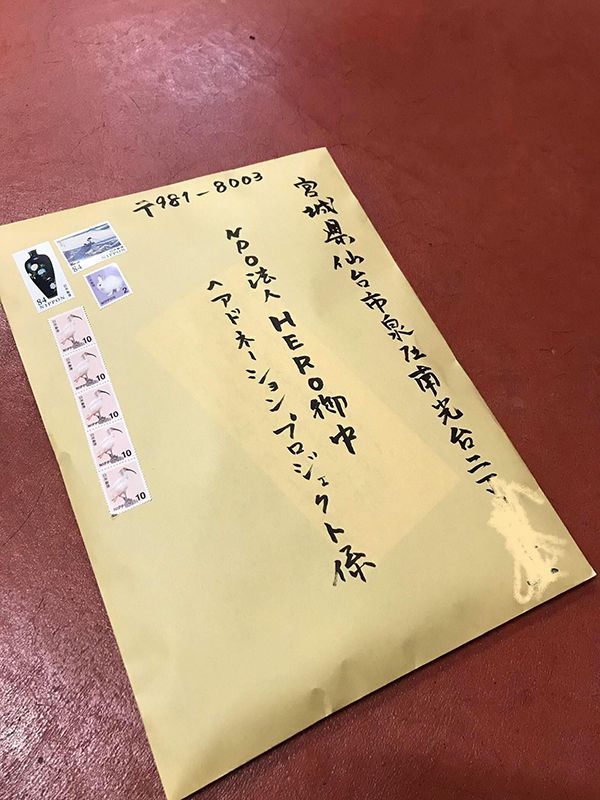 〒981-8003
宮城県仙台市泉区南光台二丁
NPO法人HERO御中
ヘアドネーションプロジェクト係
84
NIPPON
84
2
10
10
10
10
10